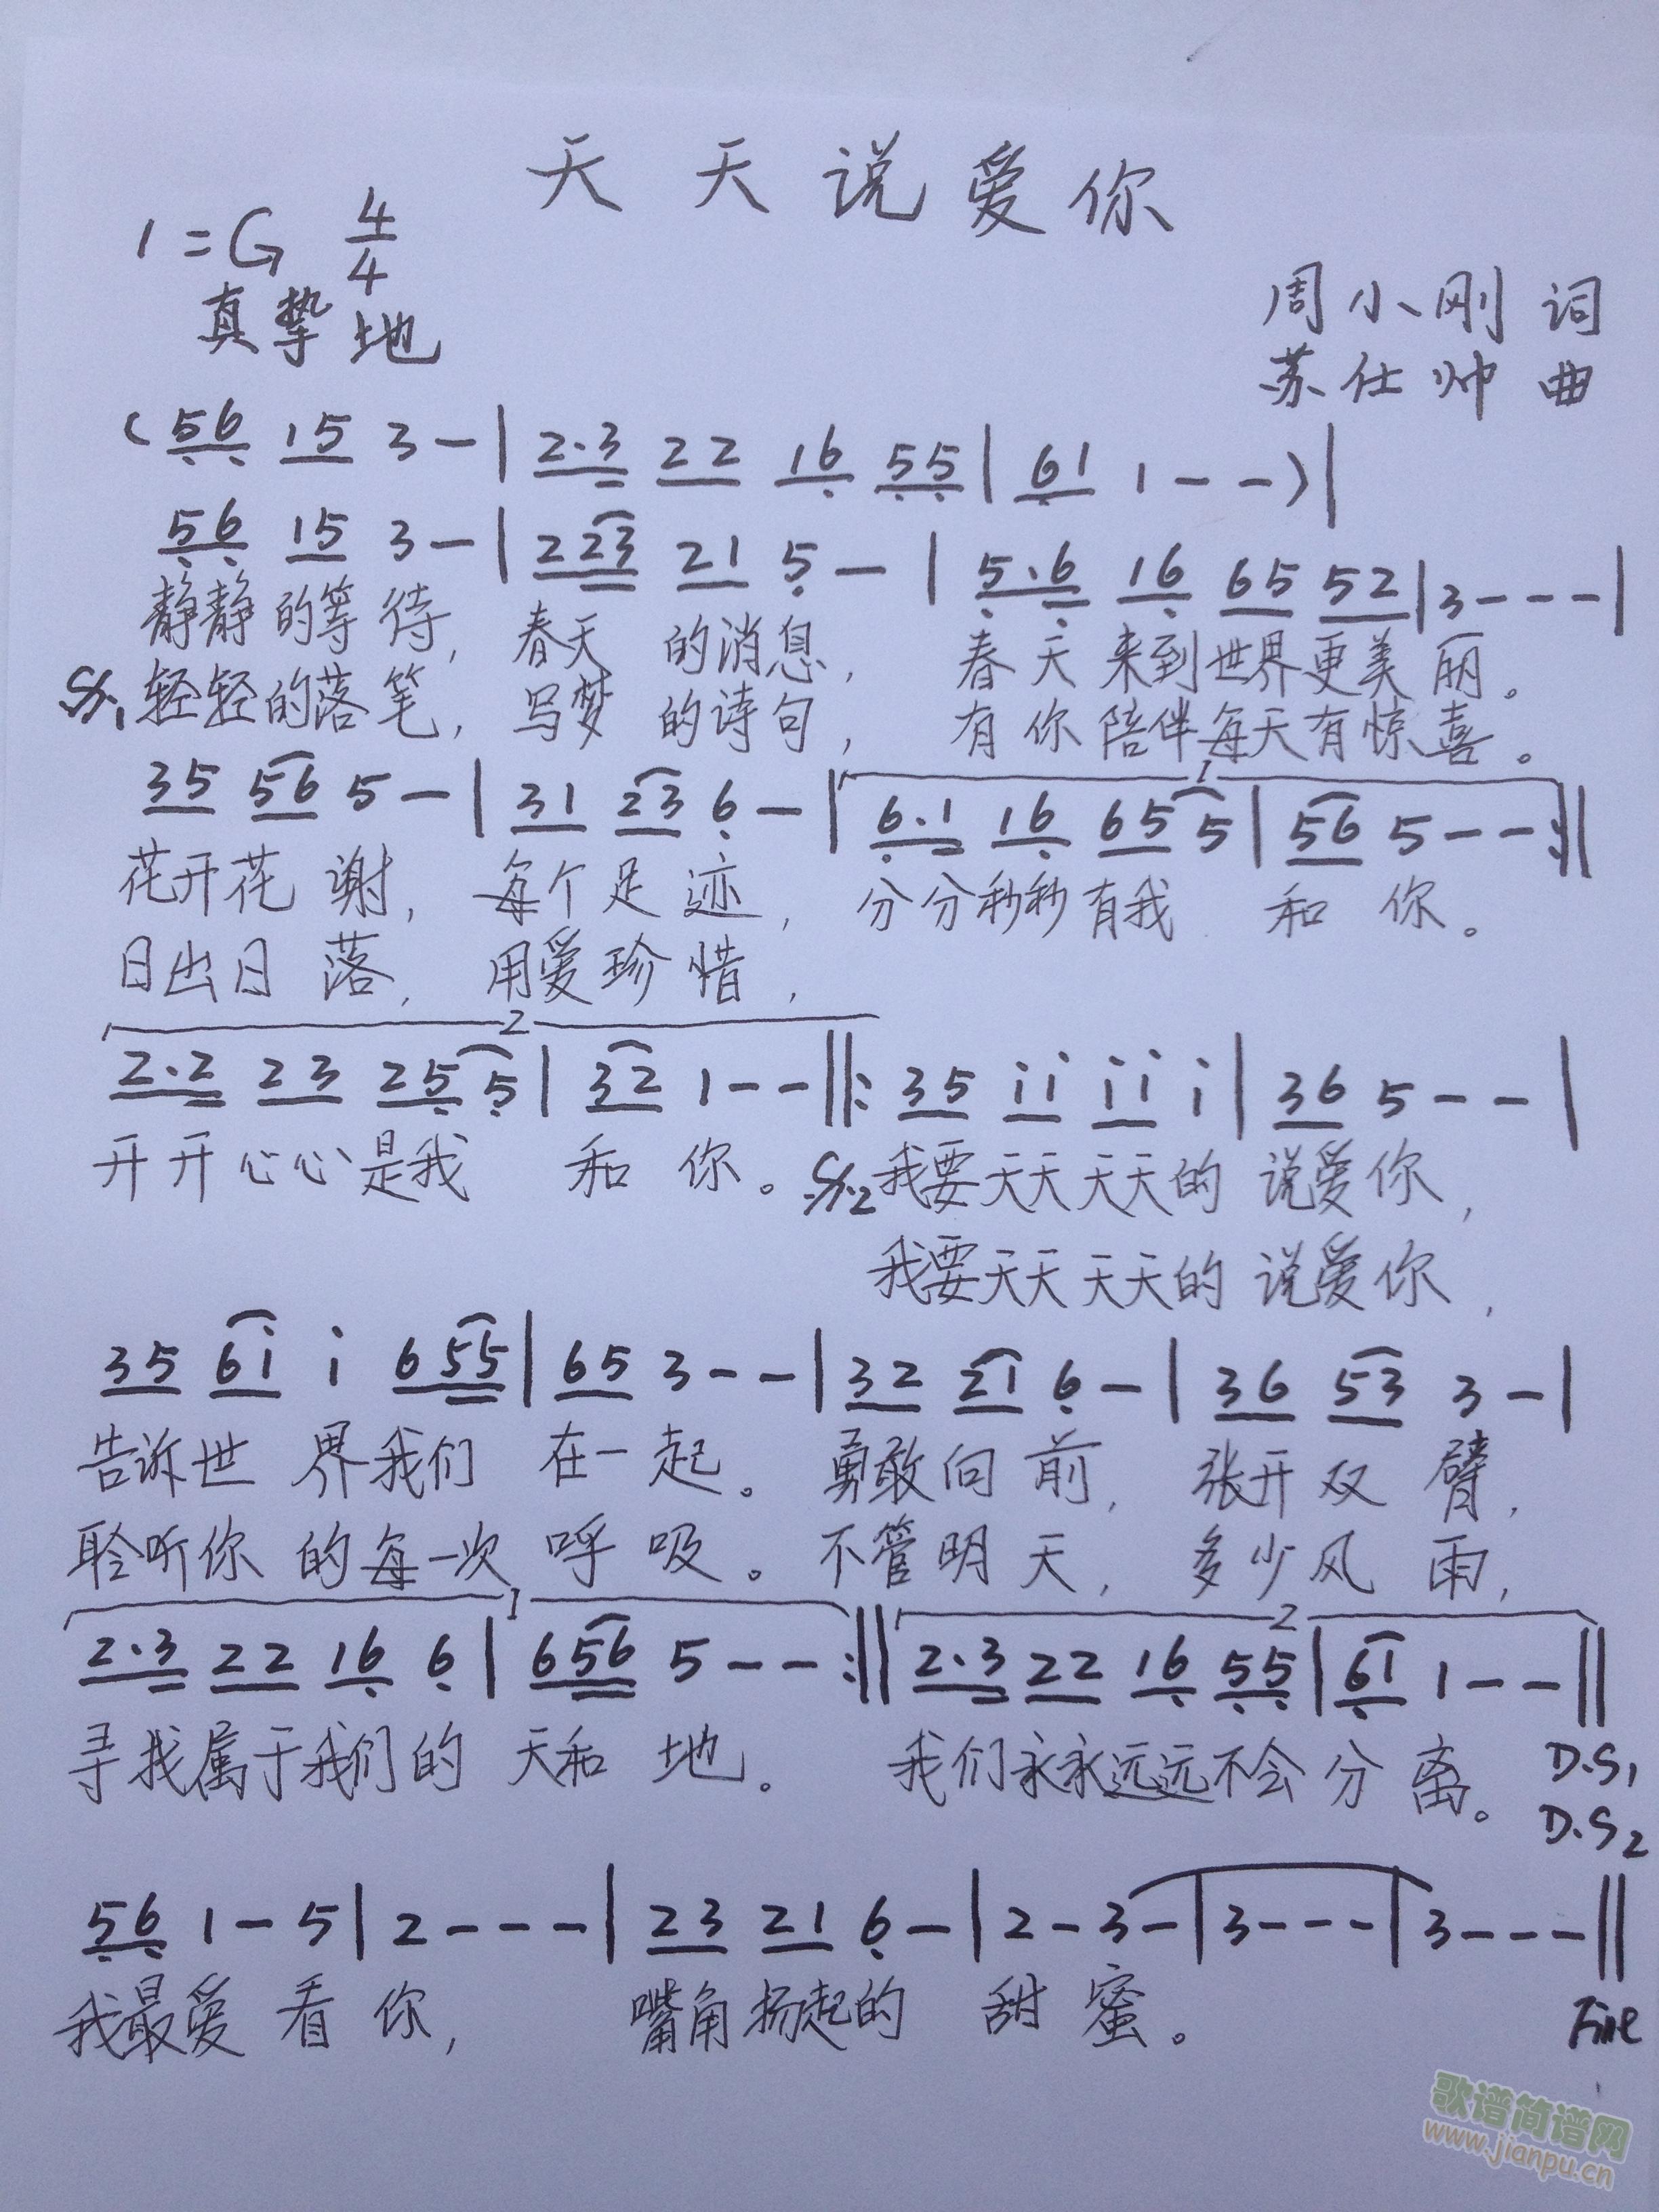 天天说爱你
1=G 4/4
真挚地
周小刚 词
苏仕帅 曲
(56 15 3 - | 2·3 22 16 55 | 61 1 - - ) |
56 15 3 - | 223 21 5 - | 5·6 16 65 52 | 3 - - - |
静静的等待, 春天 的消息, 春天来到世界更美丽。
𝄋1 轻轻的落笔, 写梦 的诗句, 有你陪伴每天有惊喜。
35 56 5 - | 31 23 6 - | 1 6·1 16 65 5 | 56 5 - - :||
花开花谢, 每个足迹, 分分秒秒有我 和你。
日出日落, 用爱珍惜,
2
2·2 23 25 5 | 32 1 - - ||: 35 ii ii i | 36 5 - - |
开开心心是我 和你。 𝄋2 我要天天天天的 说爱你,
我要天天天天的 说爱你,
35 6i i 655 | 65 3 - - | 32 21 6 - | 36 53 3 - |
告诉世界我们 在一起。 勇敢向前, 张开双臂,
聆听你的每一次 呼吸。 不管明天, 多少风雨,
1 2
2·3 22 16 6 | 656 5 - - :|| 2·3 22 16 55 | 61 1 - - ||
寻找属于我们的 天和地。 我们永永远远不会分离。 D.S1
D.S2
56 1 - 5 | 2 - - - | 23 21 6 - | 2 - 3 - | 3 - - - | 3 - - - ||
我最爱看你, 嘴角扬起的 甜蜜。
Fine
歌谱简谱网
www.jianpu.cn